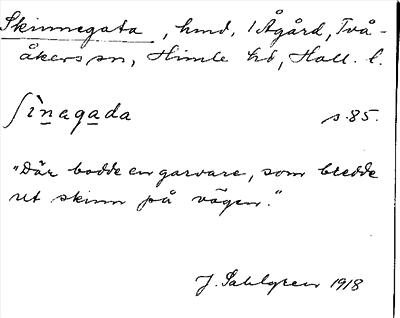 Skinnegata, hmd, 1 Ågård, Två-
åkers sn, Himle hd, Hall. l.
ʃìnagada s. 85.
"Där bodde en garvare, som bredde
ut skinn på vägen."
J. Sahlgren 1918